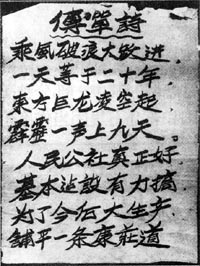 傳單詩
乘風破浪大跃进,
一天等于二十年,
東方巨龙凌空起
霹靂一声上九天。
人民公社真正好
基本建設有力搞
为了今后大生产
鋪平一条康莊道